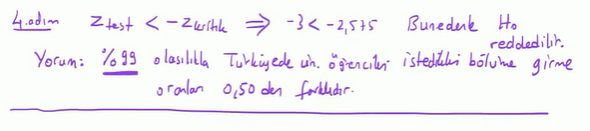 4.adım Ztest < -Zkritik ⇒ -3 < -2,575 Bu nedenle Ho reddedilir.
Yorum: %99 olasılıkla Türkiyede ün. öğrencileri istedikleri bölüme girme
oranları 0,50 den farklıdır.